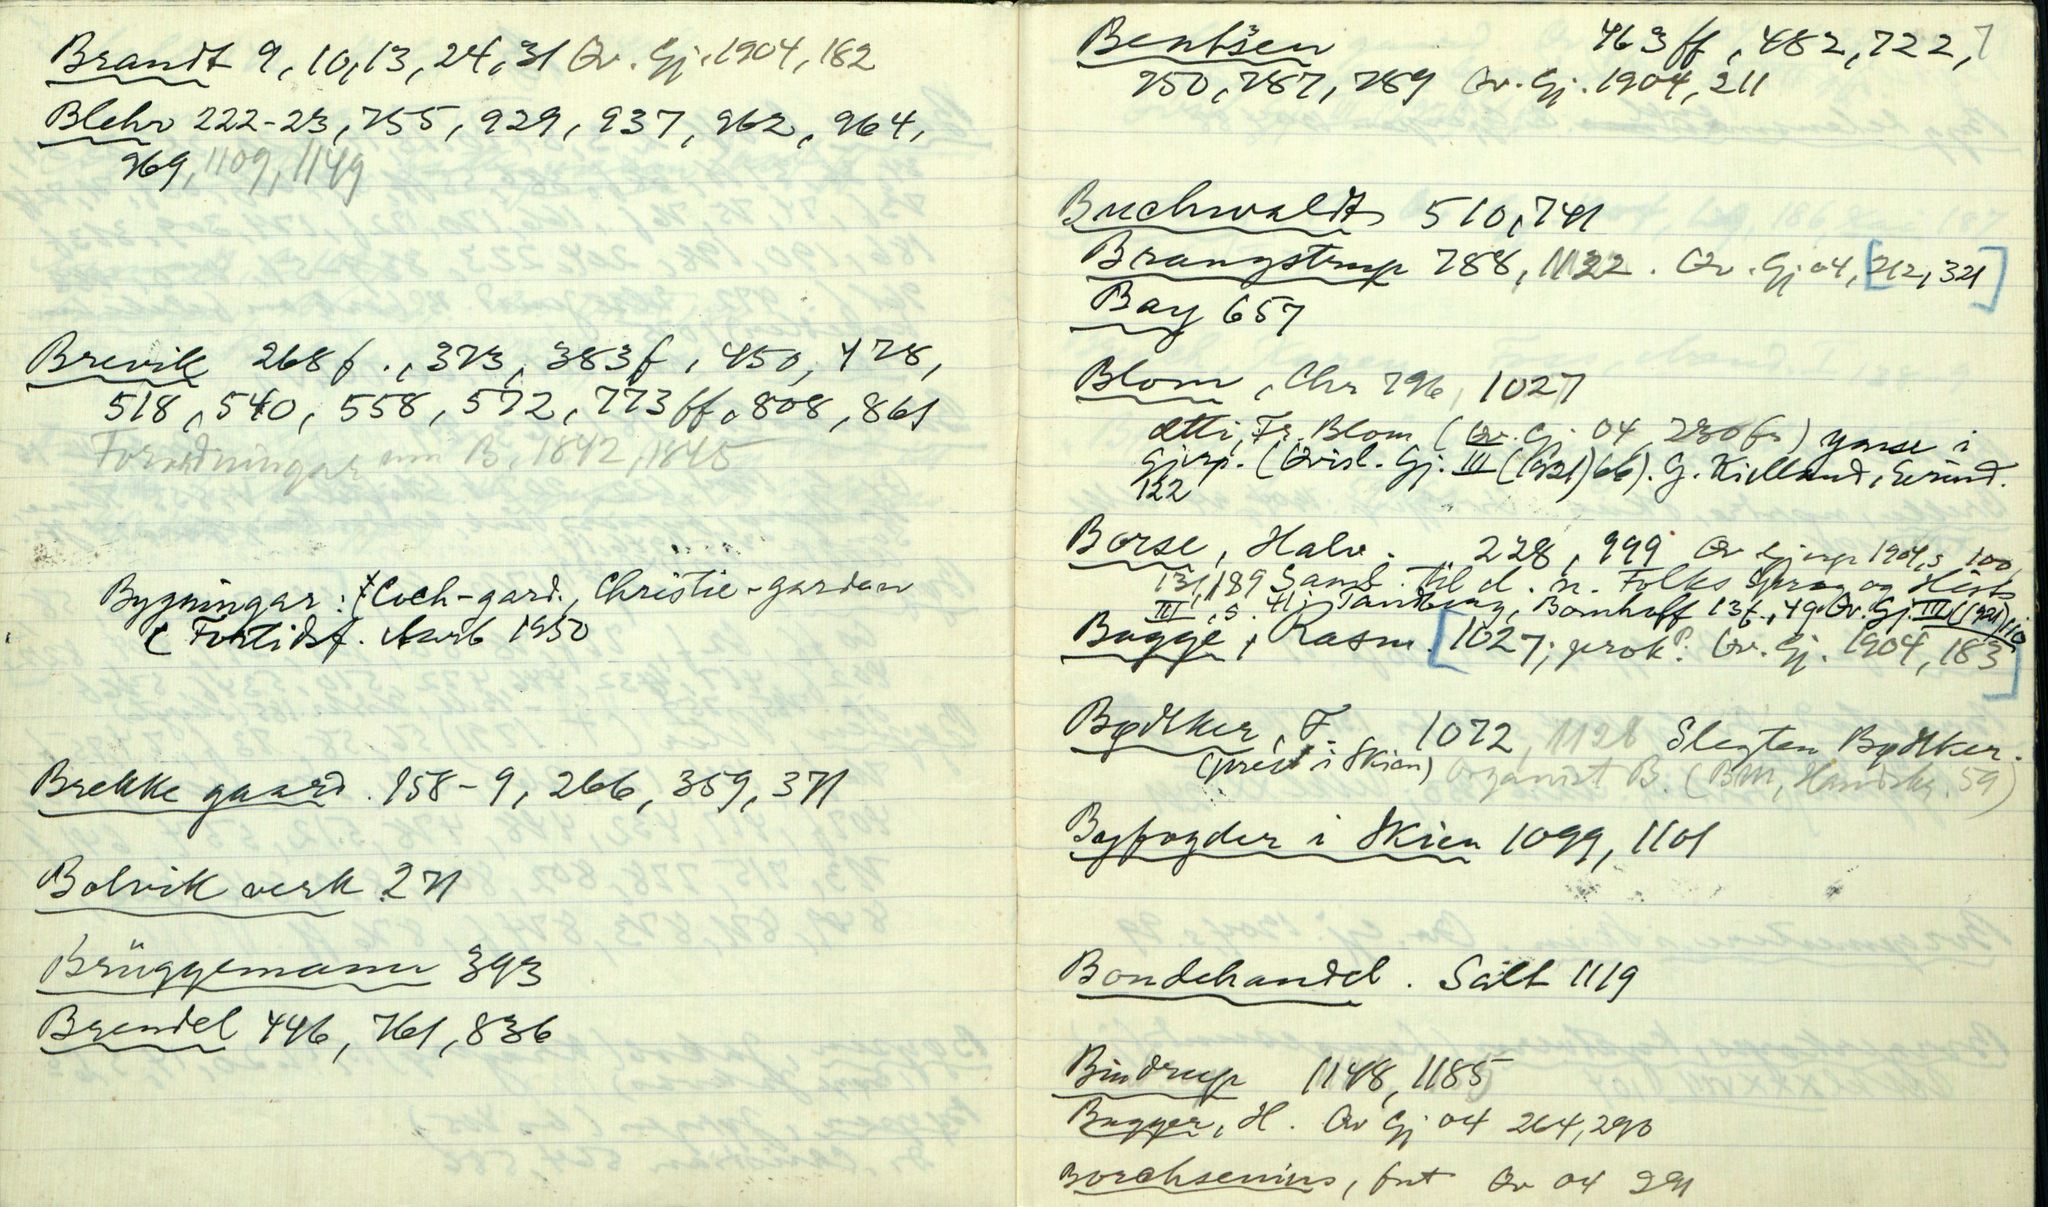 Brandt 9, 10, 13, 24, 31 Qv. Gj. 1904, 182
Blehr 222-23, 755, 929, 937, 962, 964,
969, 1109, 1149
Brevik 268 f., 373, 383 f, 450, 478,
518, 540, 558, 572, 773 ff, 808, 861
Forordningar um B, 1842, 1845
Bygningar: Coch-gard., Christie-garden
Fortidsf. Aarb 1950
Brekke gaard. 158-9, 266, 359, 371
Bolvik verk 271
Brüggemann 393
Brendel 446, 761, 836
Bentsen 463 ff, 482, 722,
750, 787, 789 Qv. Gj. 1904, 211
Buchwaldt 510, 741
Brangstrup 788, 1122. Qv. Gj 04, [212, 321]
Bay 657
Blom, Chr 796, 1027
Ætti, Fr. Blom (Qv. Gj 04, 230 ) i
Gjerp. (Qvisl. Gj. III (1921) 66). G. Kielland,
122
Borse, Halv. 228, 999 Qv Gjerp 1904, s 100,
131, 189 Saml. til d. n. Folks Sprog og Hist.
III, s. 41; Tandberg, Bomhoff 13 f., 49 Qv. Gj. III (1921) 110
Bugge, Rasm. [1027; prok: Qv. Gj. 1904, 183]
Bødtker, F. 1072, 1121 Slegten Bødtker.
(prest i Skien) Organist B. (BM, Handskr. 59)
Byfogder i Skien 1099, 1101
Bondehandel. Salt 1119
Bindrup 1148, 1185
Bugger, H. Qv Gj 04 264, 290
Borchsenius, fut Qv 04 291